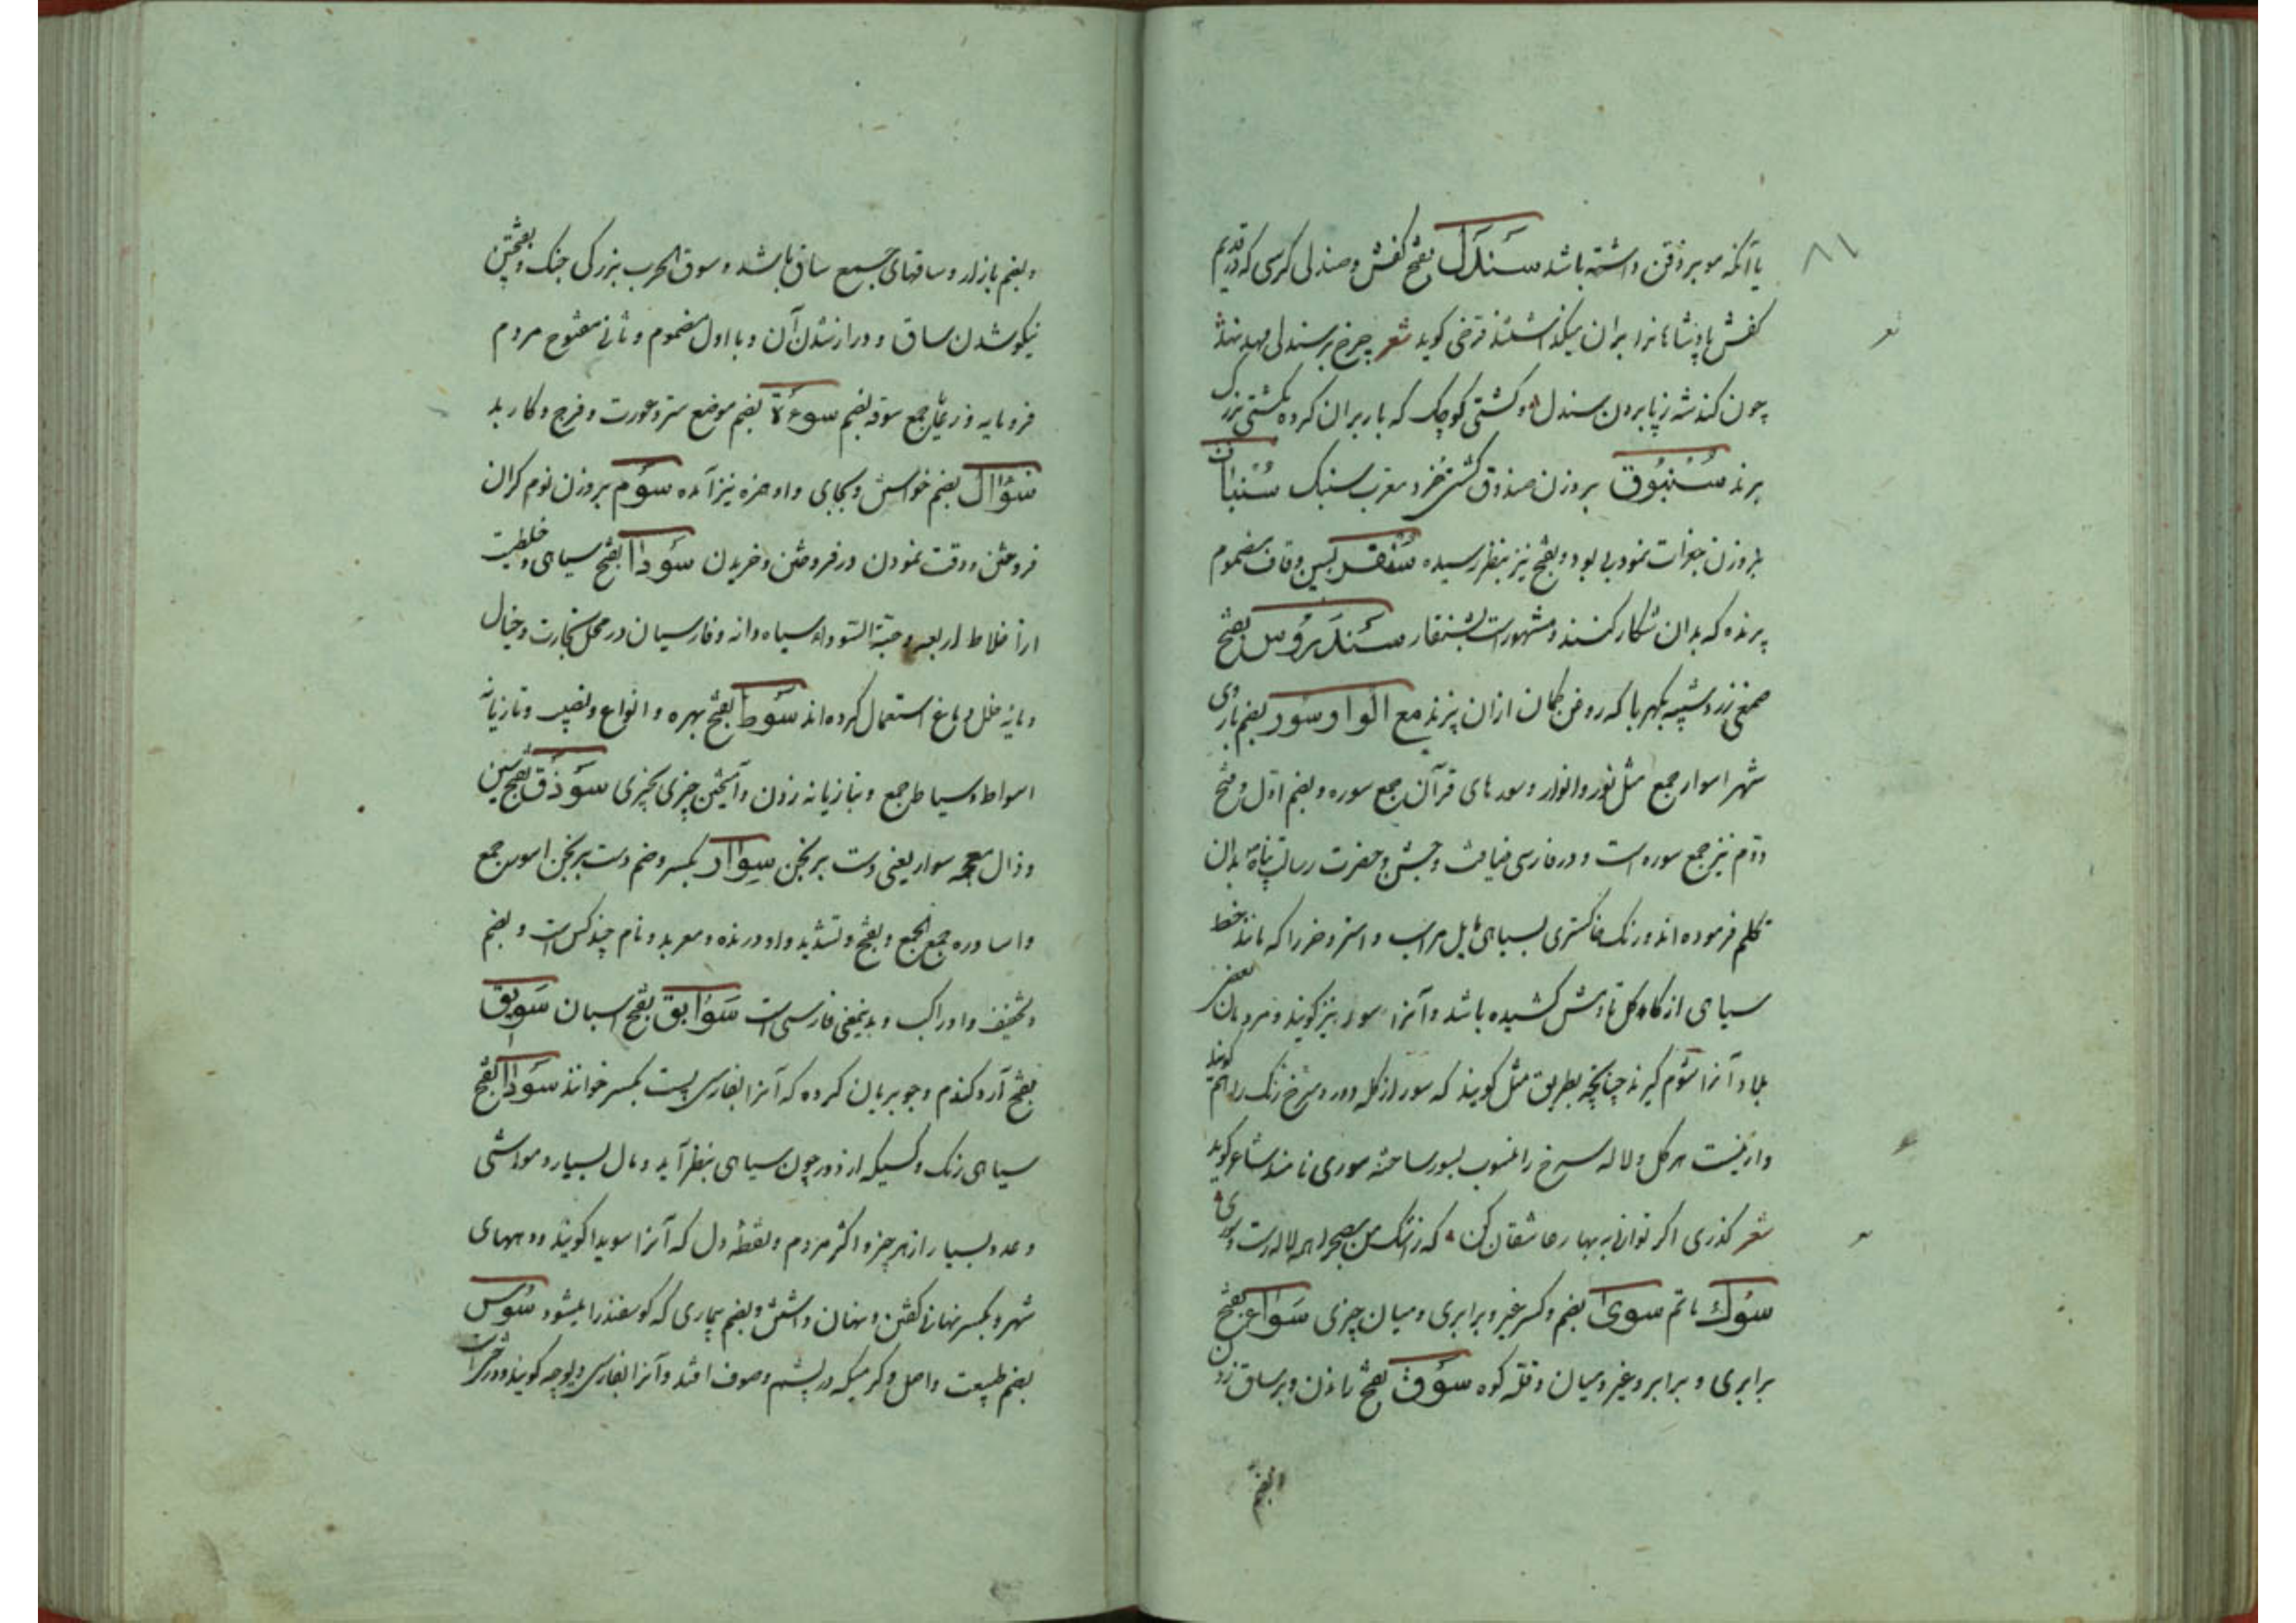 ۸۱
یا آنکه مو بر ذقن داشته باشد سندل بفتح کفش و صندلی کرسی که در قدیم
کفش پادشاهانرا بران میگذاشتند فرخی کوید شعر چرخ بر سندلی مهد نهند
چون کند شه ز پا برون سندل و کشتی کوچک که بار بران کرده بکشتی بزرک
برند سنبوق بر وزن صندوق کشتی خرد معرب سنبک
بر وزن و بفتح نیز بنظر رسیده سنقر بسین و قاف مضموم
پرنده که بدان شکار کنند و مشهور است بشنقار سندروس بفتح
صمغی زرد شبیه بکهربا که روغن کمان ازان پزند مع الواو سور بضم باروی
شهر اسوار جمع مثل نور و انوار و سورهای قرآن جمع سوره و بضم اول و فتح
دوم نیز جمع سوره است و در فارسی ضیافت و جشن و حضرت رسالت پناه بدان
تکلم فرموده اند و رنک خاکستری بسیاهی مایل و اسب و استر و خر را که مانند خط
سیاهی از کاکل تا دمش کشیده باشد و آنرا سول نیز کویند و مردمان بعضی
بلاد آنرا شوم کیرند چنانچه بطریق مثل کویند که سور از کله دور و سرخ رنک را هم کویند
و ازینست هر کل و لاله سرخ را منسوب بسور ساخته سوری نامند شاعر کوید
شعر کذری اکر توانی به بهار عاشقان کن که ز اشک من بصحرا همه لاله رست و سوری
سوک ماتم سوی بضم و کسر غیر و برابری و میان چیزی سواء بفتح
برابری و برابر و غیر و میان و قله کوه سوق بفتح راندن و بر ساق زدن
و بضم
و بضم بازار و ساقهای جمع ساق باشد و سوق الحرب بزرکی جنک و بفتحتین
نیکو شدن ساق و دراز شدن آن و با اول مضموم و ثانی مفتوح مردم
فرومایه و رعایا جمع سوقه بضم سوءة بفتح موضع ستر و عورت و فرج و کار بد
سؤال بضم خواستن و بجای واو همزه نیز آمده سوم بر وزن نوم کران
فروختن و دقت نمودن در فروختن و خریدن سودا بفتح سیاهی و خلطیست
از اخلاط اربعه و حبة السودا و سیاه دانه و فارسیان در محل تجارت و خیال
و مایه خلل دماغ استعمال کرده اند سوط بفتح بهره و انواع و نصیب و تازیانه
اسواط و سیاط جمع و بتازیانه زدن و آمیختن چیزی بچیزی سوذق بفتح سین
و ذال معجمه سوار یعنی دست برنجن سوار بکسر و ضم دست برنجن اسوره جمع
و اساوره جمع الجمع و بفتح و تشدید واو درنده و معربد و نام چند کس است و بضم
و تخفیف واو راکب و بدینمعنی فارسی است سوابق بفتح اسبان سویق
بفتح آرد کندم و جو بریان کرده که آنرا بفارسی پست بکسر خوانند سواد بفتح
سیاهی رنک و کسیکه از دور چون سیاهی بنظر آید و مال بسیار و مواشی
و عدد بسیار از هر چیز و اکثر مردم و نقطه دل که آنرا سویدا کویند و دههای
شهر و بکسر نهانی کفتن و نهان داشتن و بضم بیماری که کوسفند را میشود سوس
بضم طبیعت و اصل و کرمیکه در پشم و صوف افتد و آنرا بفارسی دیوچه کویند و درختی است